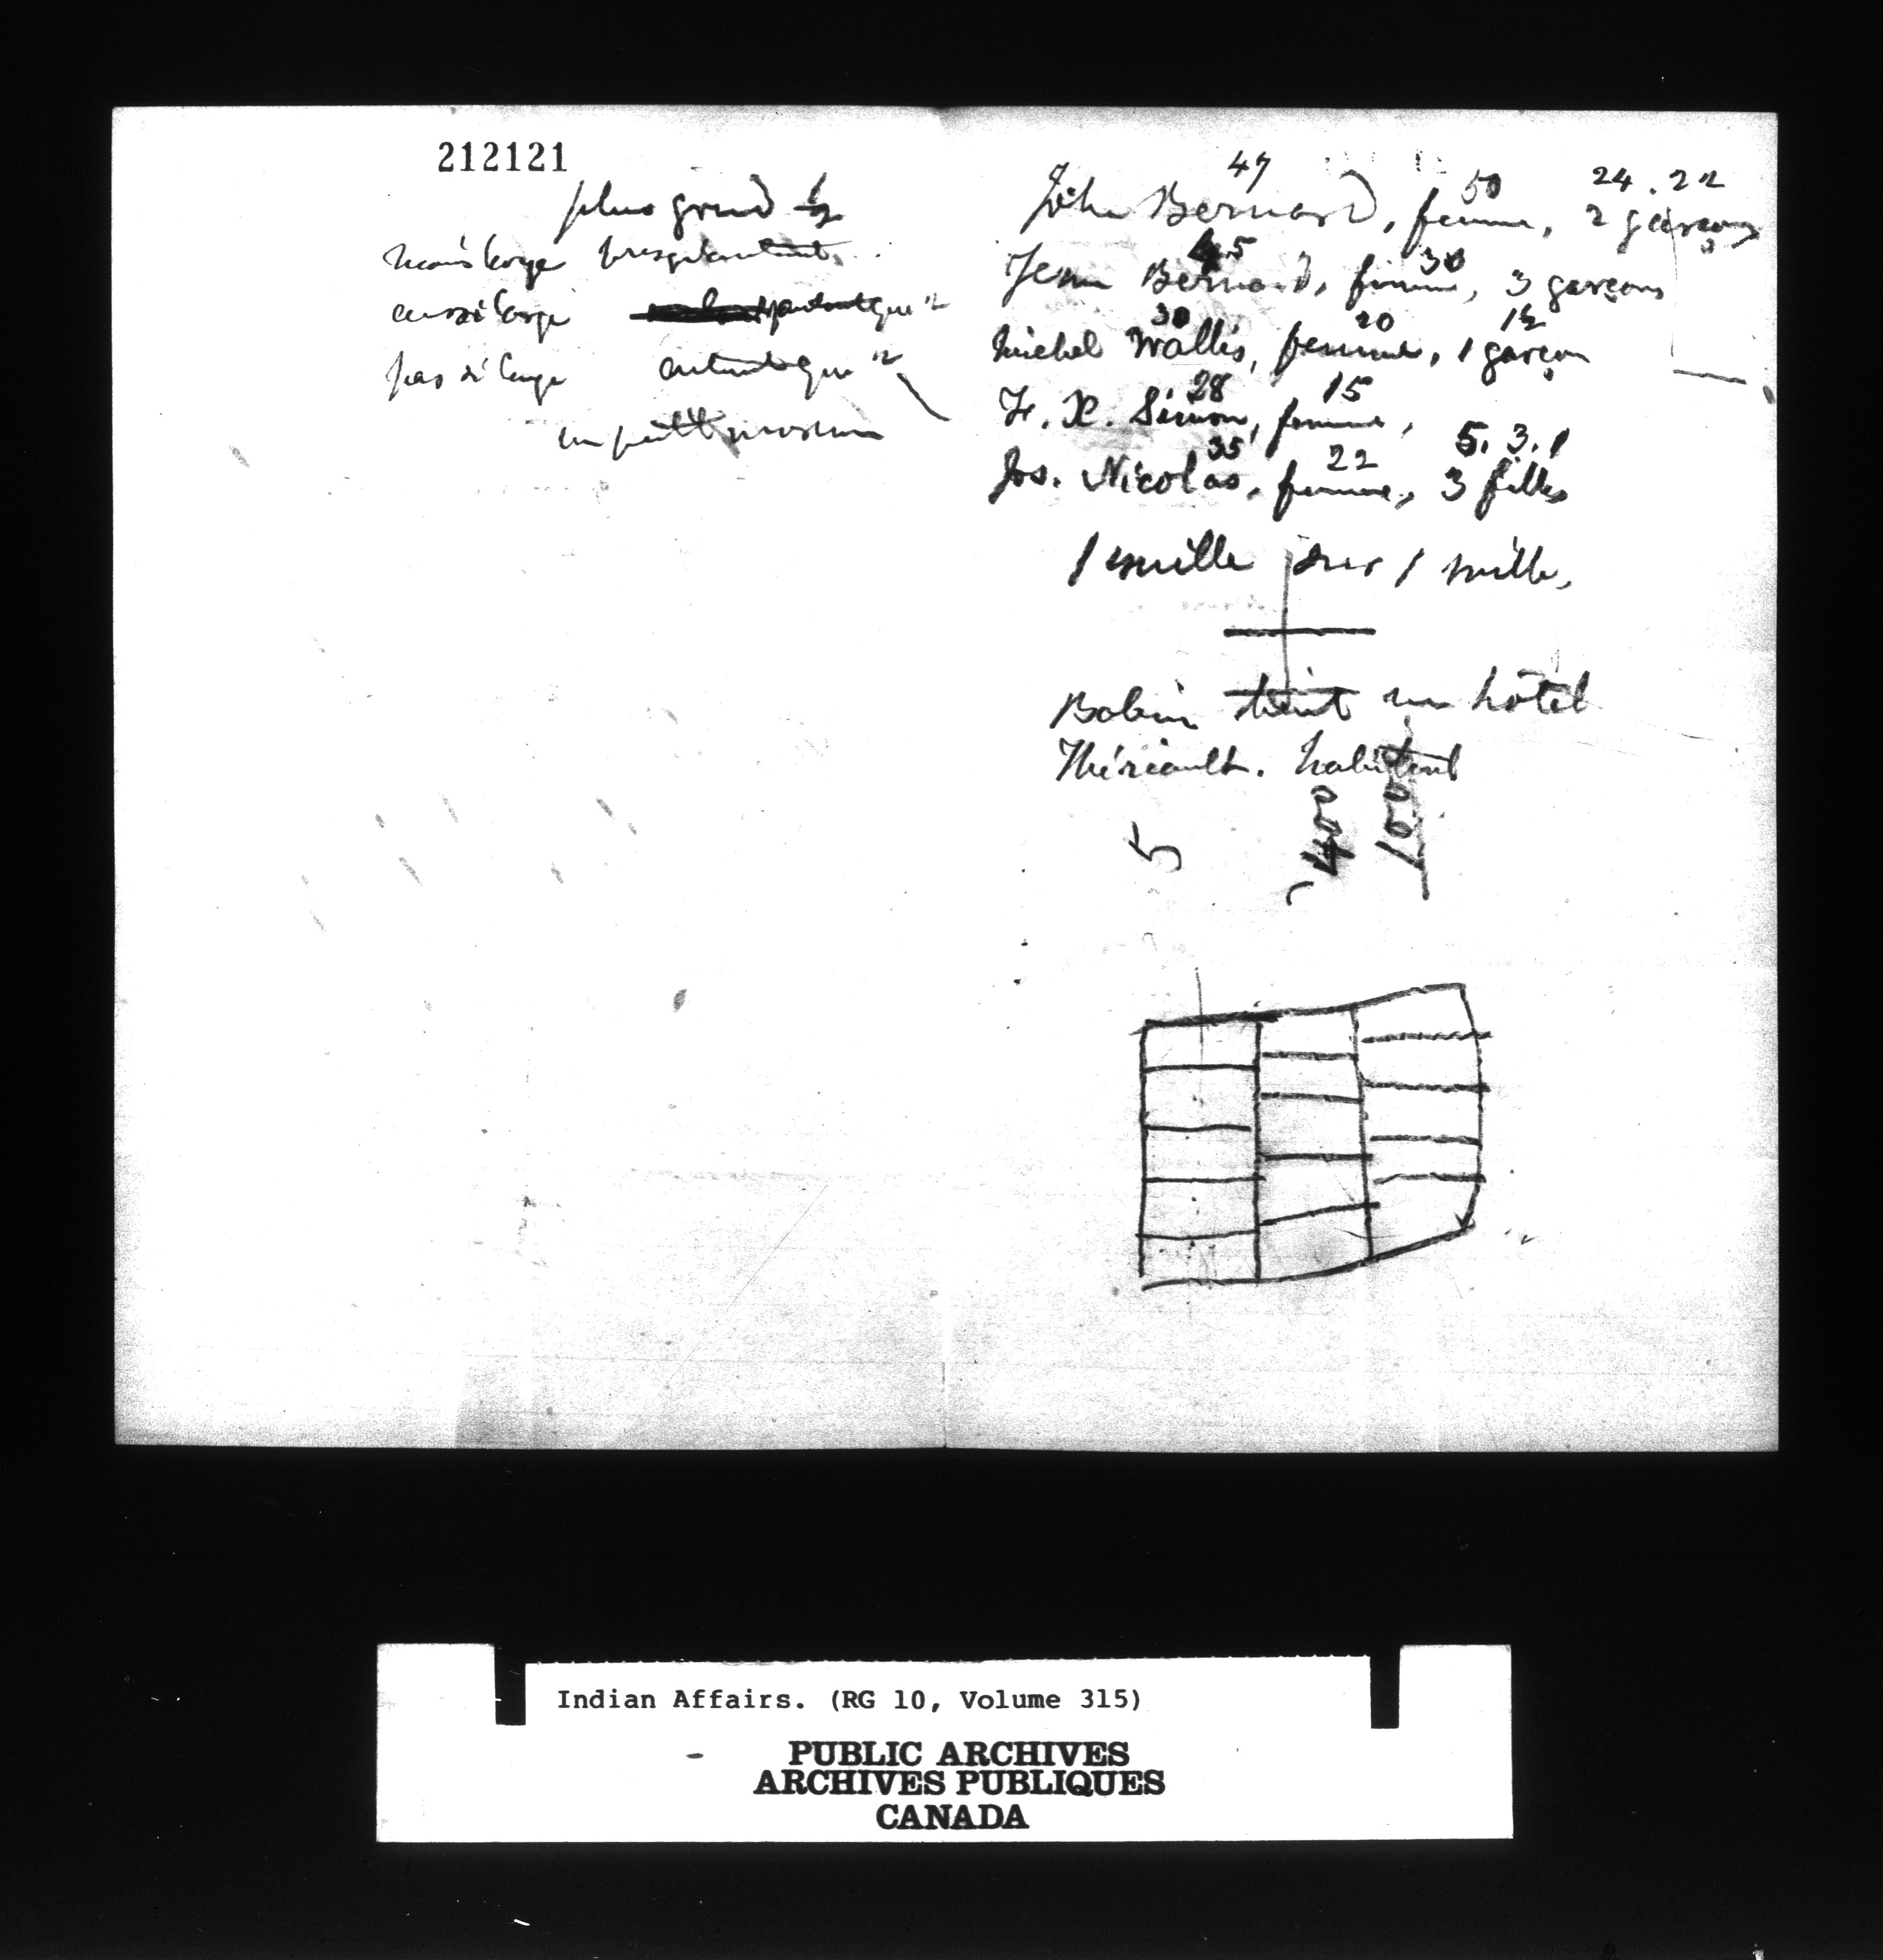 212121
plus grand
moins large presqu'autant
aussi large autant que
pas si large autant que
un petit
47 50 24.22
John Bernard, femme, 2 garçons
45 30
Jean Bernard, femme, 3 garçons
30 20 1½
Michel Wallis, femme, 1 garçon
28 15
F. X. Simon, femme,
35 22 5. 3. 1
Jos. Nicolas, femme, 3 filles
1 mille sur 1 mille,
Bobin tient un hôtel
Thériault. habitant
5
400
100
Indian Affairs. (RG 10, Volume 315)
PUBLIC ARCHIVES
ARCHIVES PUBLIQUES
CANADA